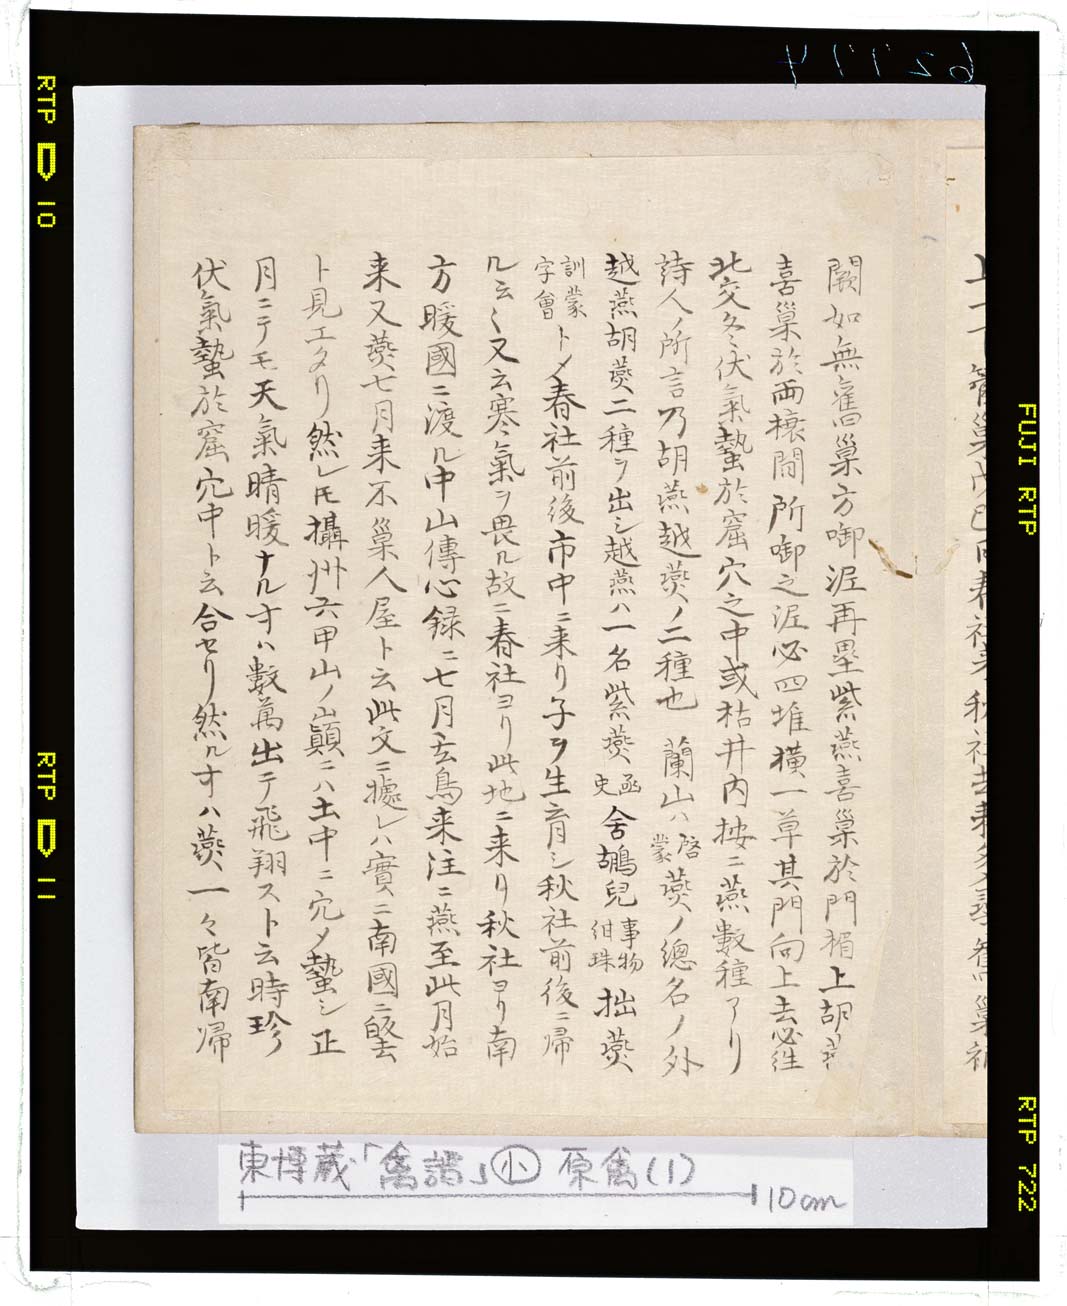 62774
闕如無舊巢方啣泥再壘紫燕喜巢於門楣上胡燕
喜巢於兩榱間所啣之泥必四堆橫一草其門向上去必往
北交冬伏氣蟄於窟穴之中或枯井内按ニ燕數種アリ
詩人ノ所言乃胡燕越燕ノ二種也 蘭山ハ啓蒙燕ノ總名ノ外
越燕胡燕二種ヲ出シ越燕ハ一名紫燕函史舍鵴兒事物紺珠拙燕
訓蒙字會トメ春社前後市中ニ来リ子ヲ生育シ秋社前後ニ帰
ル云く又云寒氣ヲ畏ル故ニ春社ヨリ此地ニ来リ秋社ヨリ南
方暖國ニ渡ル中山傳心録ニ七月玄鳥来注ニ燕至此月始
来又燕七月来不巢人屋ト云此文ニ據レハ實ニ南國ニ
ト見エタリ然レ𪜈攝州六甲山ノ巔ニハ土中ニ穴メ蟄シ正
月ニテモ天氣晴暖ナルオハ數萬出テ飛翔スト云時珍
伏氣蟄於窟穴中ト云合セリ然ルオハ燕一々皆南帰
東博蔵「禽譜」小 原禽(1)
10cm
RTP 10
RTP 11
FUJI RTP
RTP 722